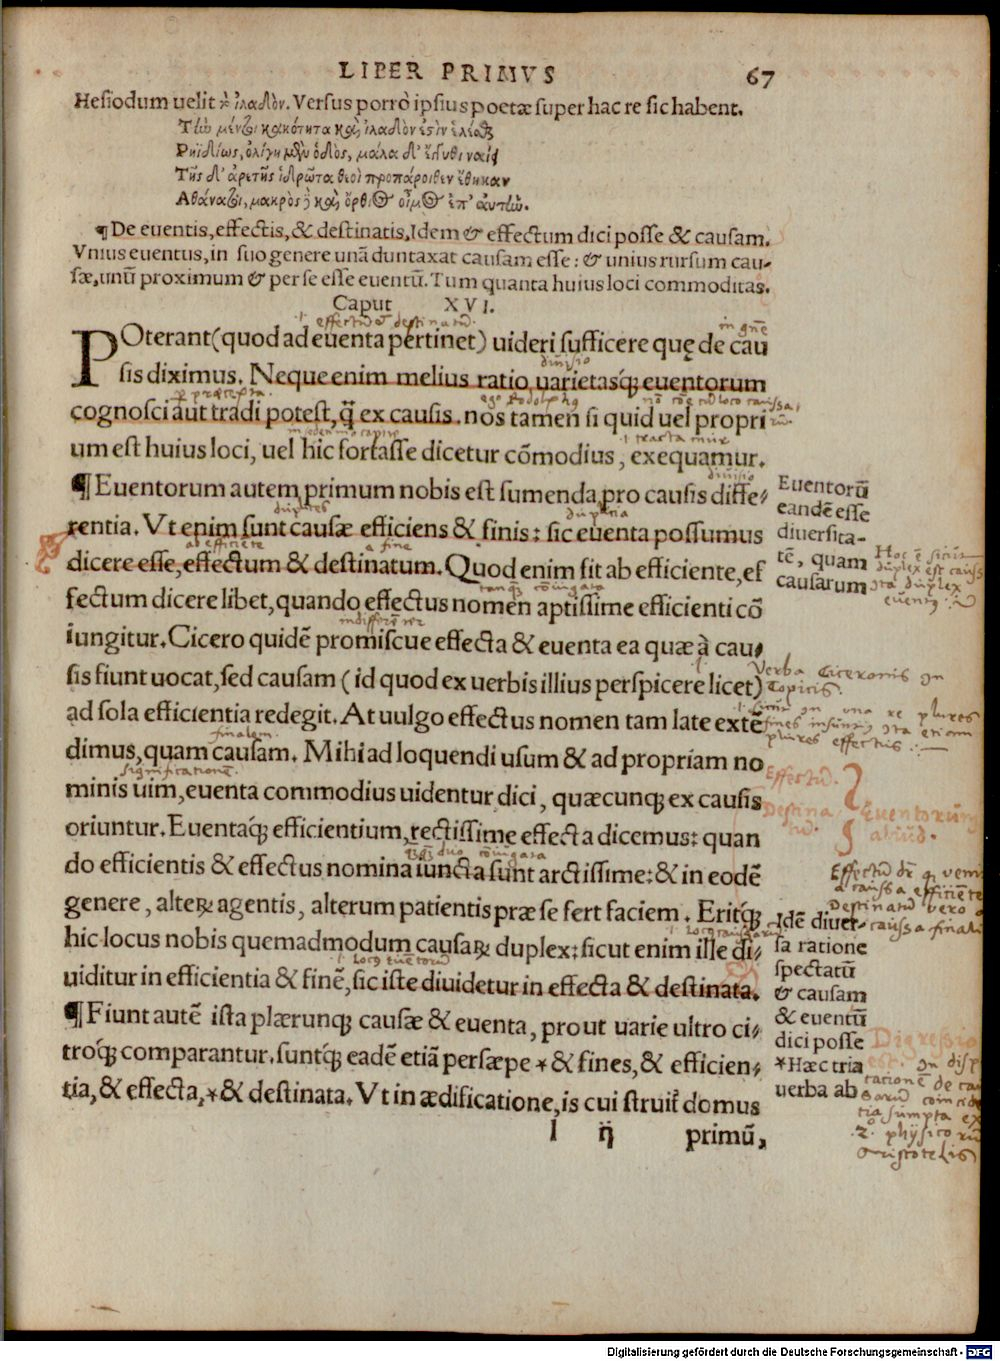 LIBER PRIMVS 67
Hesiodum uelit & ἰλαδὸν. Versus porrò ipsius poetæ super hac re sic habent.
Τὴν μέντοι κακότητα καὶ ἰλαδὸν ἐστὶν ἑλέσθαι
Ρηϊδίως, ὀλίγη μὲν ὁδὸς, μάλα δ' ἐγγύθι ναίει
Τῆς δ' ἀρετῆς ἱδρῶτα θεοὶ προπάροιθεν ἔθηκαν
Αθάνατοι, μακρὸς δὲ καὶ ὄρθιος οἶμος ἐπ' αὐτὴν.
¶ De euentis, effectis, & destinatis. Idem & effectum dici posse & causam.
Vnius euentus, in suo genere unā duntaxat causam esse: & unius rursum cau-
sæ, unū proximum & per se esse euentū. Tum quanta huius loci commoditas.
Caput XVI.
effectū & destinatū.
in gñe
POterant (quod ad euenta pertinet) uideri sufficere quę de cau
diuisio
sis diximus. Neque enim melius ratio, uarietasq́; euentorum
cognosci aut tradi potest, q̃ ex causis. nos tamen si quid uel propri
um est huius loci, uel hic fortasse dicetur cōmodius, exequamur.
diuisio
¶ Euentorum autem primum nobis est sumenda pro causis diffe-
rentia. Vt enim sunt causæ efficiens & finis: sic euenta possumus
ab efficiēte a fine
dicere esse, effectum & destinatum. Quod enim fit ab efficiente, ef
fectum dicere libet, quando effectus nomen aptissime efficienti cō
iungitur. Cicero quidē promiscue effecta & euenta ea quæ à cau-
sis fiunt uocat, sed causam (id quod ex uerbis illius perspicere licet)
ad sola efficientia redegit. At uulgo effectus nomen tam late extē
finalem.
dimus, quam causam. Mihi ad loquendi usum & ad propriam no
significationē.
minis uim, euenta commodius uidentur dici, quæcunq; ex causis
oriuntur. Euentaq́; efficientium, rectissime effecta dicemus: quan
do efficientis & effectus nomina iuncta sunt arctissime: & in eodē
genere, alterꝝ agentis, alterum patientis præ se fert faciem. Eritq́;
hic locus nobis quemadmodum causaꝝ duplex: sicut enim ille di-
uiditur in efficientia & finē, sic iste diuidetur in effecta & destinata.
¶ Fiunt autē ista plærunq; causæ & euenta, prout uarie ultro ci-
troq́; comparantur. suntq́; eadē etiā persæpe * & fines, & efficien-
tia, & effecta, * & destinata. Vt in ædificatione, is cui struit̃ domus
I ij primū,
Euentorū
eandē esse
diuersita-
tē, quam
causarum
Verba Ciceronis in
Topicis.
Effectū.
Destina
tū.
Euentorum
aliud.
Effectū dr̃ q̃ venit
a caussa efficiēte
Destinatū vero
caussa finali
Idē diuer-
sa ratione
spectatū
& causam
& euentū
dici posse
* Hæc tria
uerba ab
Digressio
est. In disp
tatione de cau
sarū
tia sumpta ex
.2. physicorū
Aristotelis
Digitalisierung gefördert durch die Deutsche Forschungsgemeinschaft - DFG